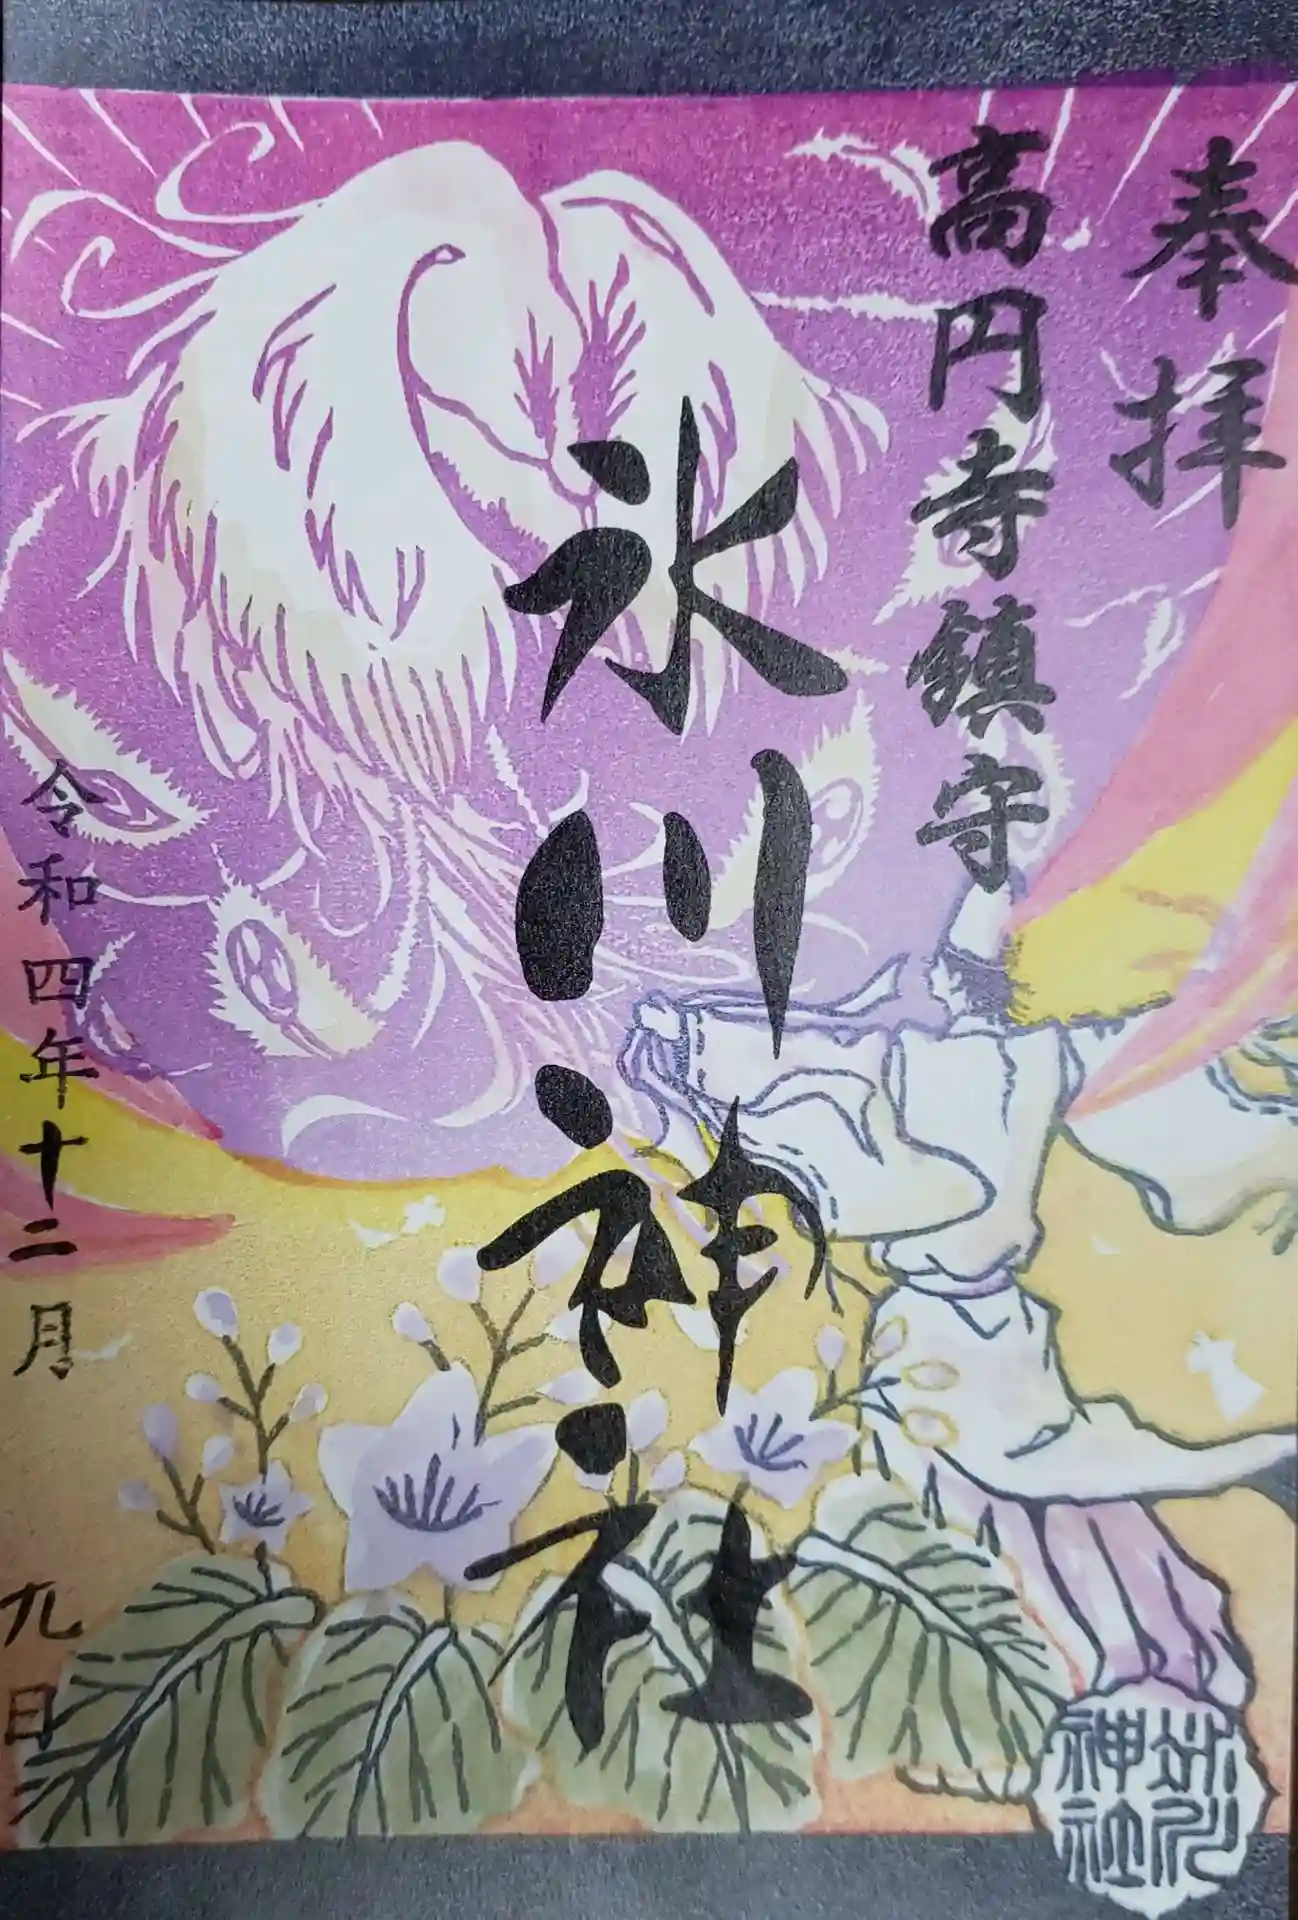 奉拝
高円寺鎮守
氷川神社
令和四年十二月九日
氷川
神社